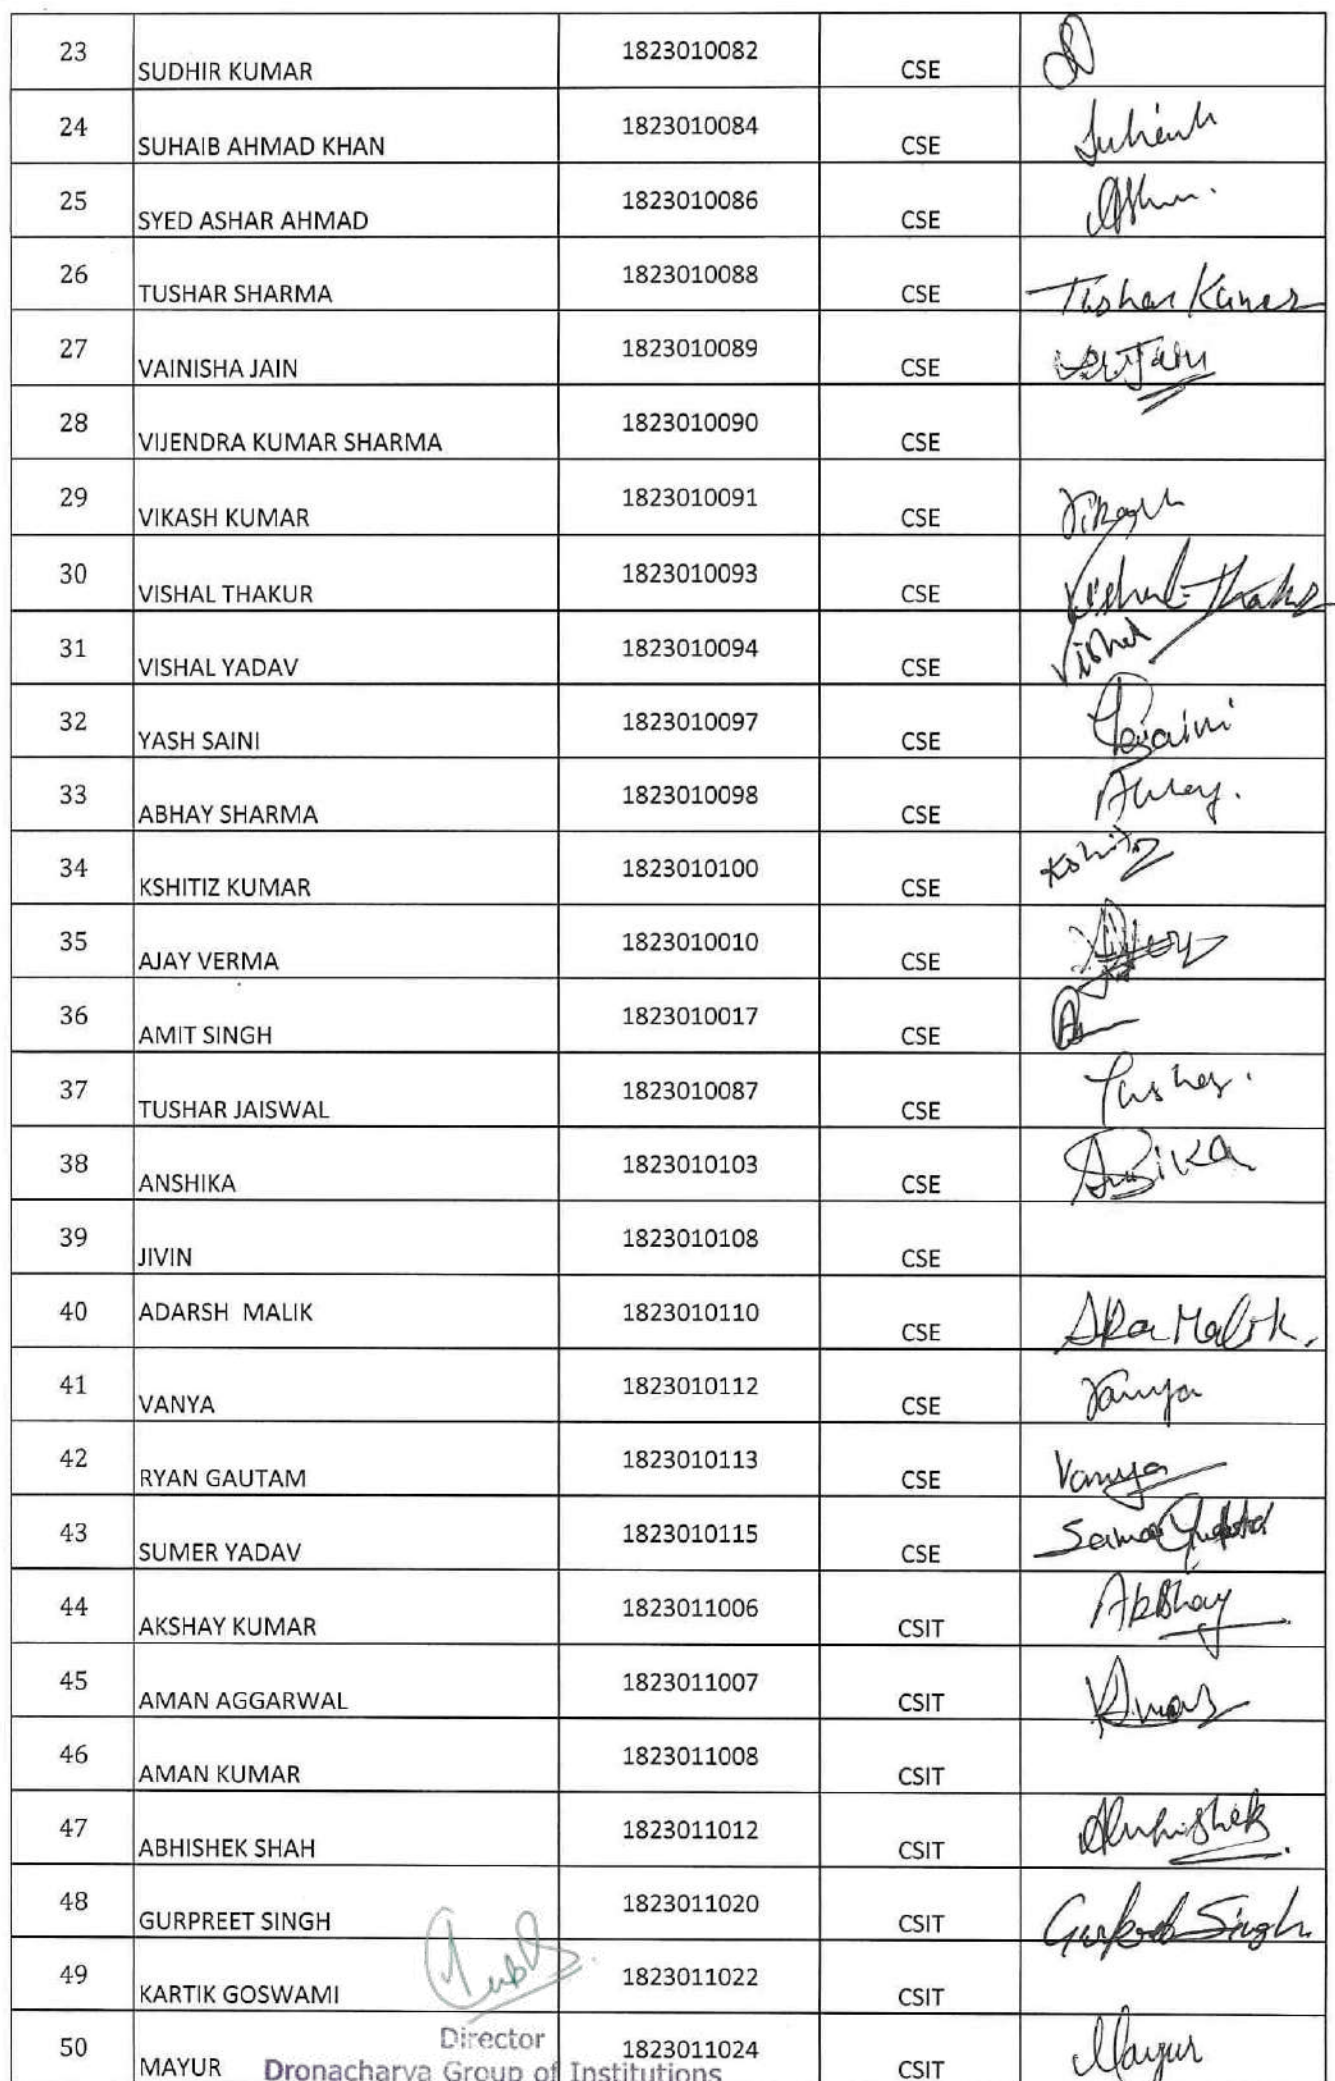 23 SUDHIR KUMAR 1823010082 CSE
24 SUHAIB AHMAD KHAN 1823010084 CSE Suhaib
25 SYED ASHAR AHMAD 1823010086 CSE
26 TUSHAR SHARMA 1823010088 CSE Tushar Kumar
27 VAINISHA JAIN 1823010089 CSE Jain
28 VIJENDRA KUMAR SHARMA 1823010090 CSE
29 VIKASH KUMAR 1823010091 CSE Vikash
30 VISHAL THAKUR 1823010093 CSE Vishal Thakur
31 VISHAL YADAV 1823010094 CSE Vishal
32 YASH SAINI 1823010097 CSE
33 ABHAY SHARMA 1823010098 CSE Abhay.
34 KSHITIZ KUMAR 1823010100 CSE Kshitiz
35 AJAY VERMA 1823010010 CSE
36 AMIT SINGH 1823010017 CSE
37 TUSHAR JAISWAL 1823010087 CSE Tushar.
38 ANSHIKA 1823010103 CSE
39 JIVIN 1823010108 CSE
40 ADARSH MALIK 1823010110 CSE Malik.
41 VANYA 1823010112 CSE Vanya
42 RYAN GAUTAM 1823010113 CSE Vanya
43 SUMER YADAV 1823010115 CSE
44 AKSHAY KUMAR 1823011006 CSIT Akshay
45 AMAN AGGARWAL 1823011007 CSIT Aman
46 AMAN KUMAR 1823011008 CSIT
47 ABHISHEK SHAH 1823011012 CSIT Abhishek
48 GURPREET SINGH 1823011020 CSIT Singh
49 KARTIK GOSWAMI 1823011022 CSIT
Director
50 MAYUR 1823011024 CSIT Mayur
Dronacharya Group of Institutions